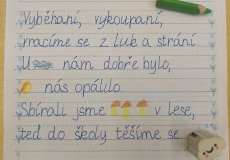 Vyběhaní, vykoupaní,
vracíme se z luk a strání.
U nám dobře bylo,
nás opálilo.
Sbírali jsme v lese,
teď do školy těšíme se.